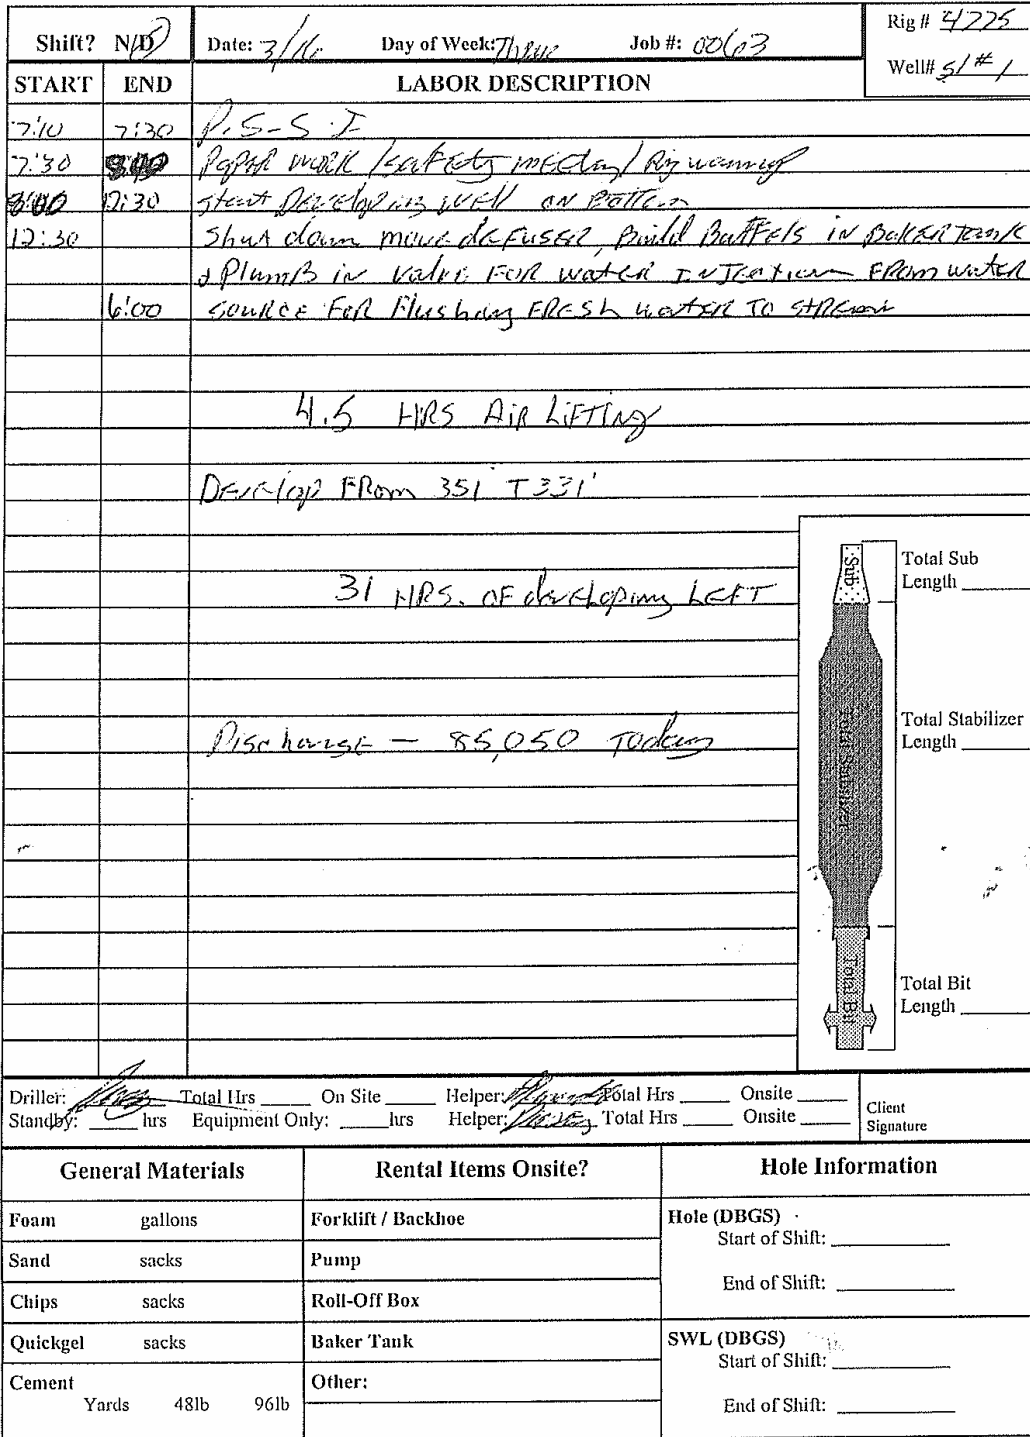 Shift? N/D Date: 3/16 Day of Week: Job #: 0063 Rig # 4225
Well# S1#1
START END LABOR DESCRIPTION
7:10 7:30 P.S-S-I
7:30 PAPER WORK / SAFETY MEETING / Rig warmup
8:00 12:30 Start Developing WELL ON Bottom
12:30 Shut down move defuser, Build BaffElS in BAKER TANK
& PlumB in valve FOR water INJection FROM water
6:00 SOURCE FOR Flushing FRESH water TO STREAM
4.5 HRS AiR LiFTiNg
Develop FROM 351' T 331'
31 HRS. OF developing LEFT
Discharge – 85,050 Today
Sub
Total Sub
Length
Total Stabilizer
Total Stabilizer
Length
Total Bit
Total Bit
Length
Driller: Total Hrs On Site Helper: Total Hrs Onsite
Standby: hrs Equipment Only: hrs Helper: Total Hrs Onsite
Client
Signature
General Materials Rental Items Onsite? Hole Information
Foam gallons Forklift / Backhoe Hole (DBGS)
Start of Shift:
Sand sacks Pump
End of Shift:
Chips sacks Roll-Off Box
Quickgel sacks Baker Tank SWL (DBGS)
Start of Shift:
Cement Other:
Yards 48lb 96lb End of Shift: